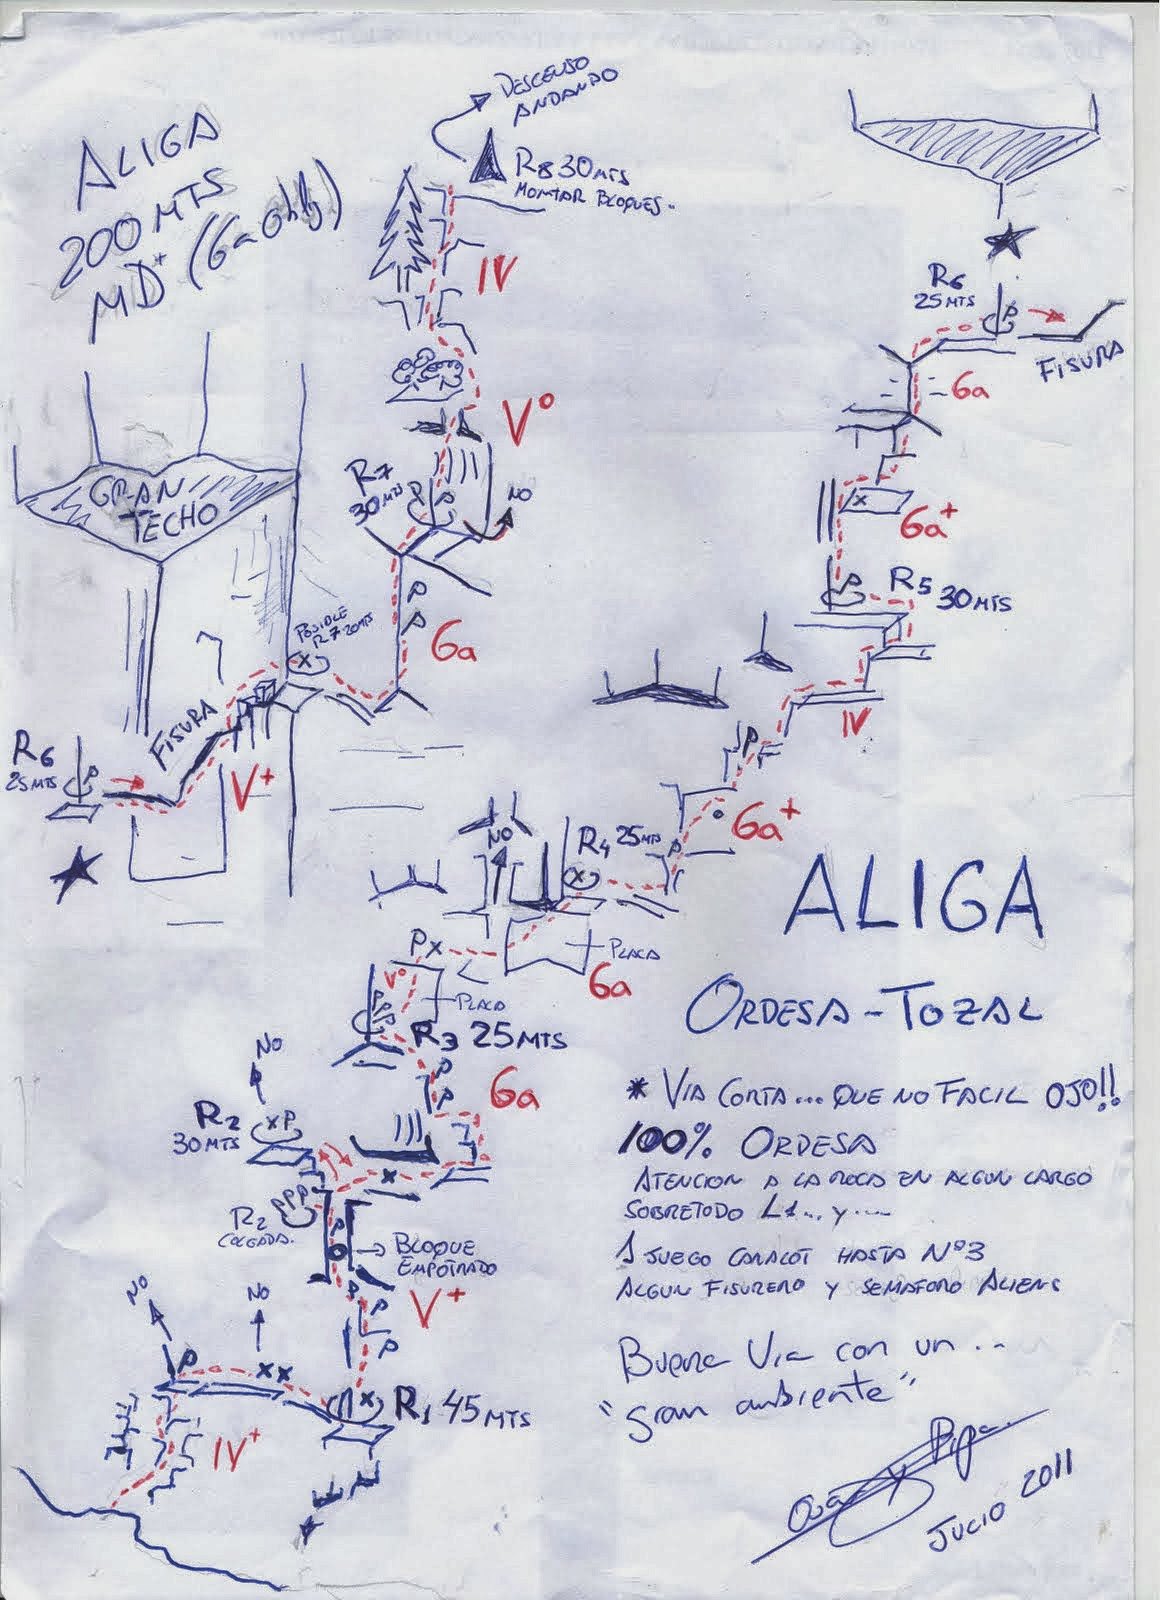 ALIGA
200 MTS
MD+ (6a oblg)
DESCENSO
ANDANDO
R8 30 MTS
MONTAR BLOQUES.
IV
Vº
R7
30 MTS
P
P
NO
P
P
6a
GRAN
TECHO
POSIBLE
R7 20 MTS
X
FISURA
V+
R6
25 MTS
P
R6
25 MTS
P
FISURA
6a
X
6a+
P
R5 30 MTS
IV
P
6a+
P
R4 25 MTS
X
NO
PLACA
6a
PX
Vº
PLACA
PPP
R3 25 MTS
P
P
6a
NO
R2
30 MTS
XP
X
PPP
R2
COLGADA.
P
BLOQUE
EMPOTRADO
P
P
V+
P
NO
NO
P
XX
X
R1 45 MTS
IV+
ALIGA
ORDESA - TOZAL
* VIA CORTA... QUE NO FACIL OJO!!
100% ORDESA
ATENCION A LA ROCA EN ALGUN LARGO
SOBRETODO L1... Y....
1 JUEGO CAMALOT HASTA Nº3
ALGUN FISURERO Y SEMAFORO ALIENS
Buena Via con un...
"gran ambiente"
JULIO 2011